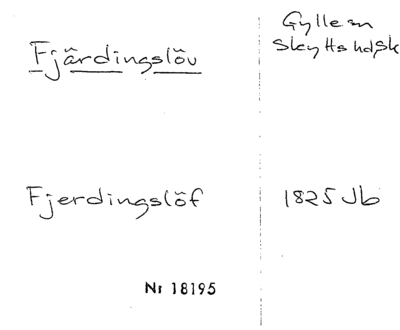 Fjärdingslöv
Gyllesn
Skytts hd, Sk
Fjerdingslöf
1825 Jb
Nr 18195